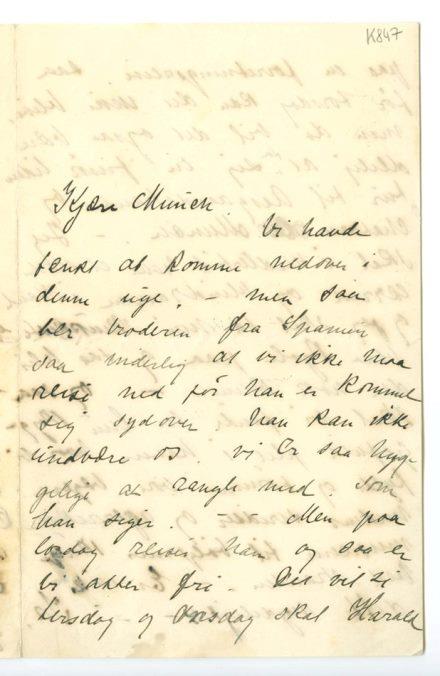 K847
Kjære Munch.
Vi havde
tenkt at komme nedover i
denne uge. – men saa
ber broderen fra Spanien
saa inderlig at vi ikke maa
reise ned før han er kommet
sig sydover han kan ikke
undvære os. vi er saa hygge
gelige at rangle med. som
han siger. – Men paa
lørdag reiser han og saa er
vi atter fri – Det vil si
tirsdag og onsdag skal Harald